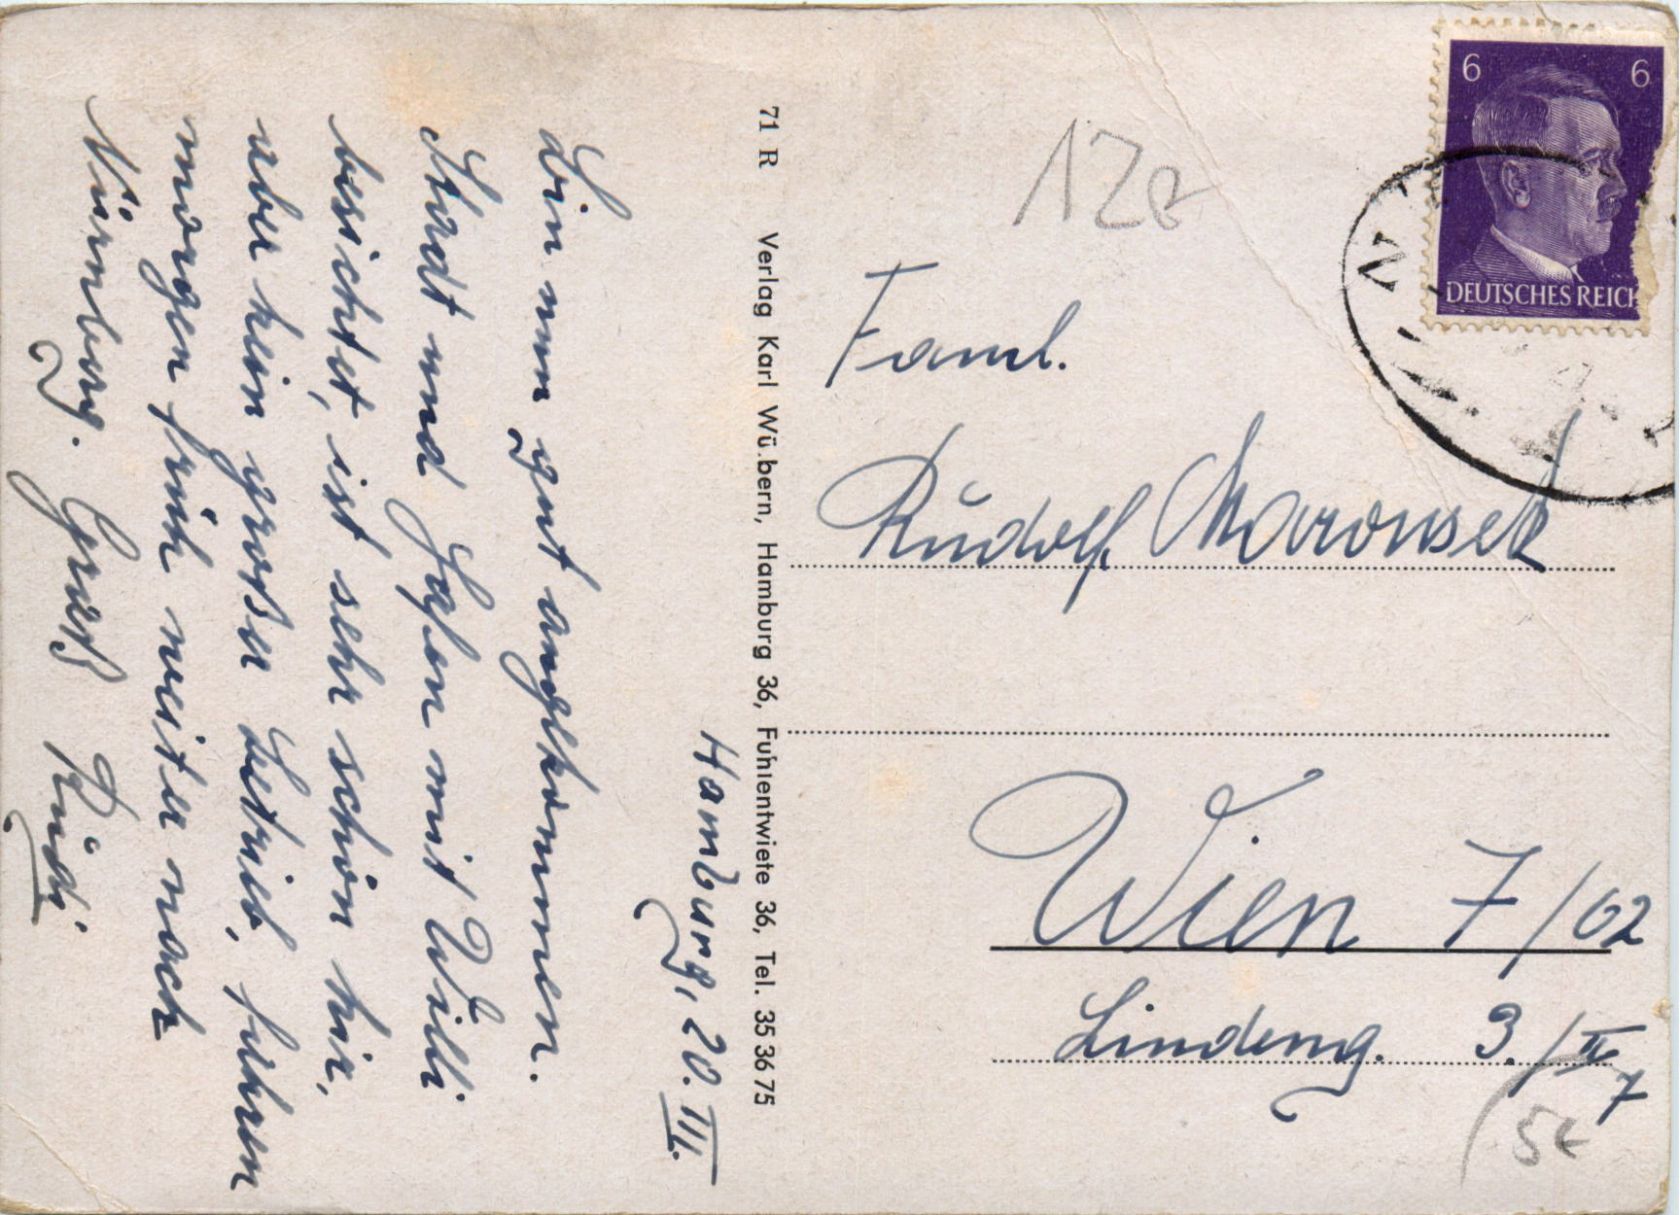 Hamburg, 20. III.
Bin nun gut angekommen.
Stadt und Hafen mit Willi
besichtet, ist sehr schön hir,
aber kein großer betrieb, fahren
morgen früh weiter nach
Nürnberg. Gruß Rudi
71 R Verlag Karl Wü.bern, Hamburg 36, Fuhlentwiete 36, Tel. 35 36 75
6 6
DEUTSCHES REICH
12e
Faml.
Rudolf Marousek
Wien 7/62
Lindeng. 3./II
7
5€